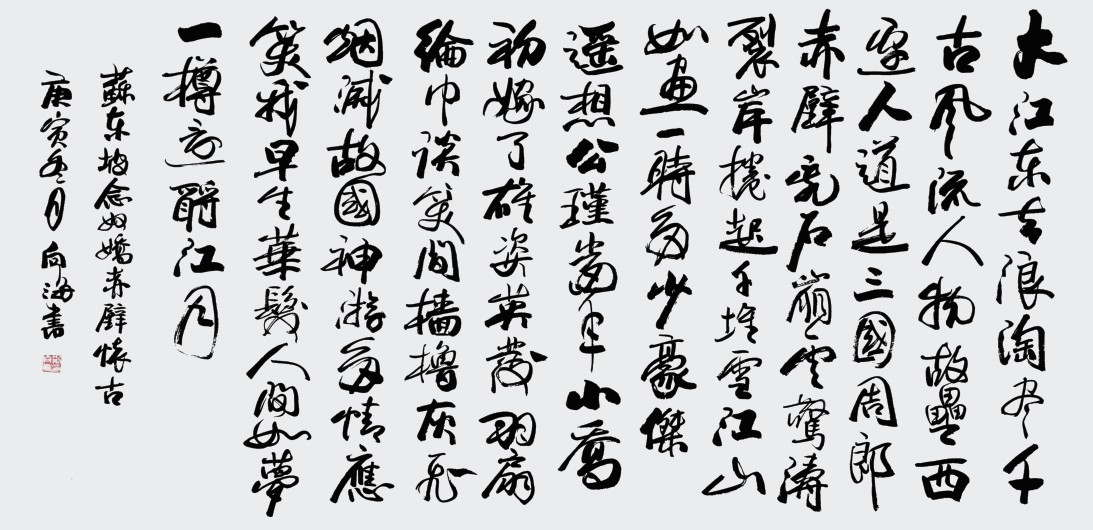 大江东去浪淘尽千
古风流人物故壘西
边人道是三國周郎
赤壁乱石崩云驚涛
裂岸捲起千堆雪江山
如画一時多少豪傑
遥想公瑾當年小喬
初嫁了雄姿英发羽扇
綸巾谈笑间檣櫓灰飞
烟滅故國神游多情應
笑我早生華髮人间如夢
一樽还酹江月
蘇东坡念奴嬌赤壁懷古
庚寅冬月向海書